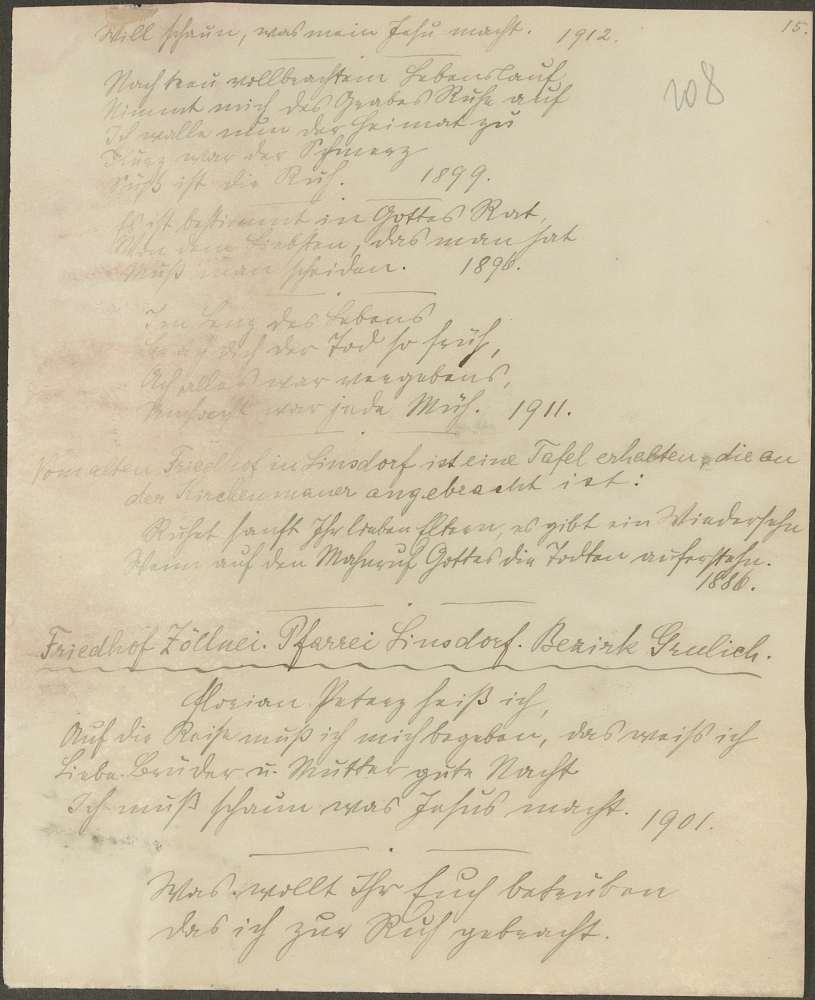 15.
Will schaun, was mein Jesu macht. 1912.
108
Nach treu vollbrachtem Lebenslauf
Nimmt mich des Grabes Ruhe auf
Ich walle nun der Heimat zu
Kurz war der Schmerz
Süß ist die Ruh. 1899.
Es ist bestimmt in Gottes Rat,
Von dem Liebsten, das man hat
Muß man scheiden. 1896.
Im Lenz des Lebens
dich der Tod so früh,
Ach alles war vergebens,
Umsonst war jede Müh. 1911.
Vom alten Friedhof in Linsdorf ist eine Tafel erhalten, die an
der Kirchenmauer angebracht ist:
Ruhet sanft Ihr lieben Eltern, es gibt ein Wiedersehn
Wenn auf den Mahnruf Gottes die Todten auferstehn.
1886.
Friedhof Zöllnei. Pfarrei Linsdorf. Bezirk Grulich.
Florian Peterz heiß ich,
Auf die Reise muß ich mich begeben, das weiß ich
Liebe Brüder u. Mutter gute Nacht
Ich muß schaun was Jesus macht. 1901.
Was wollt Ihr Euch betrüben
das ich zur Ruh gebracht.